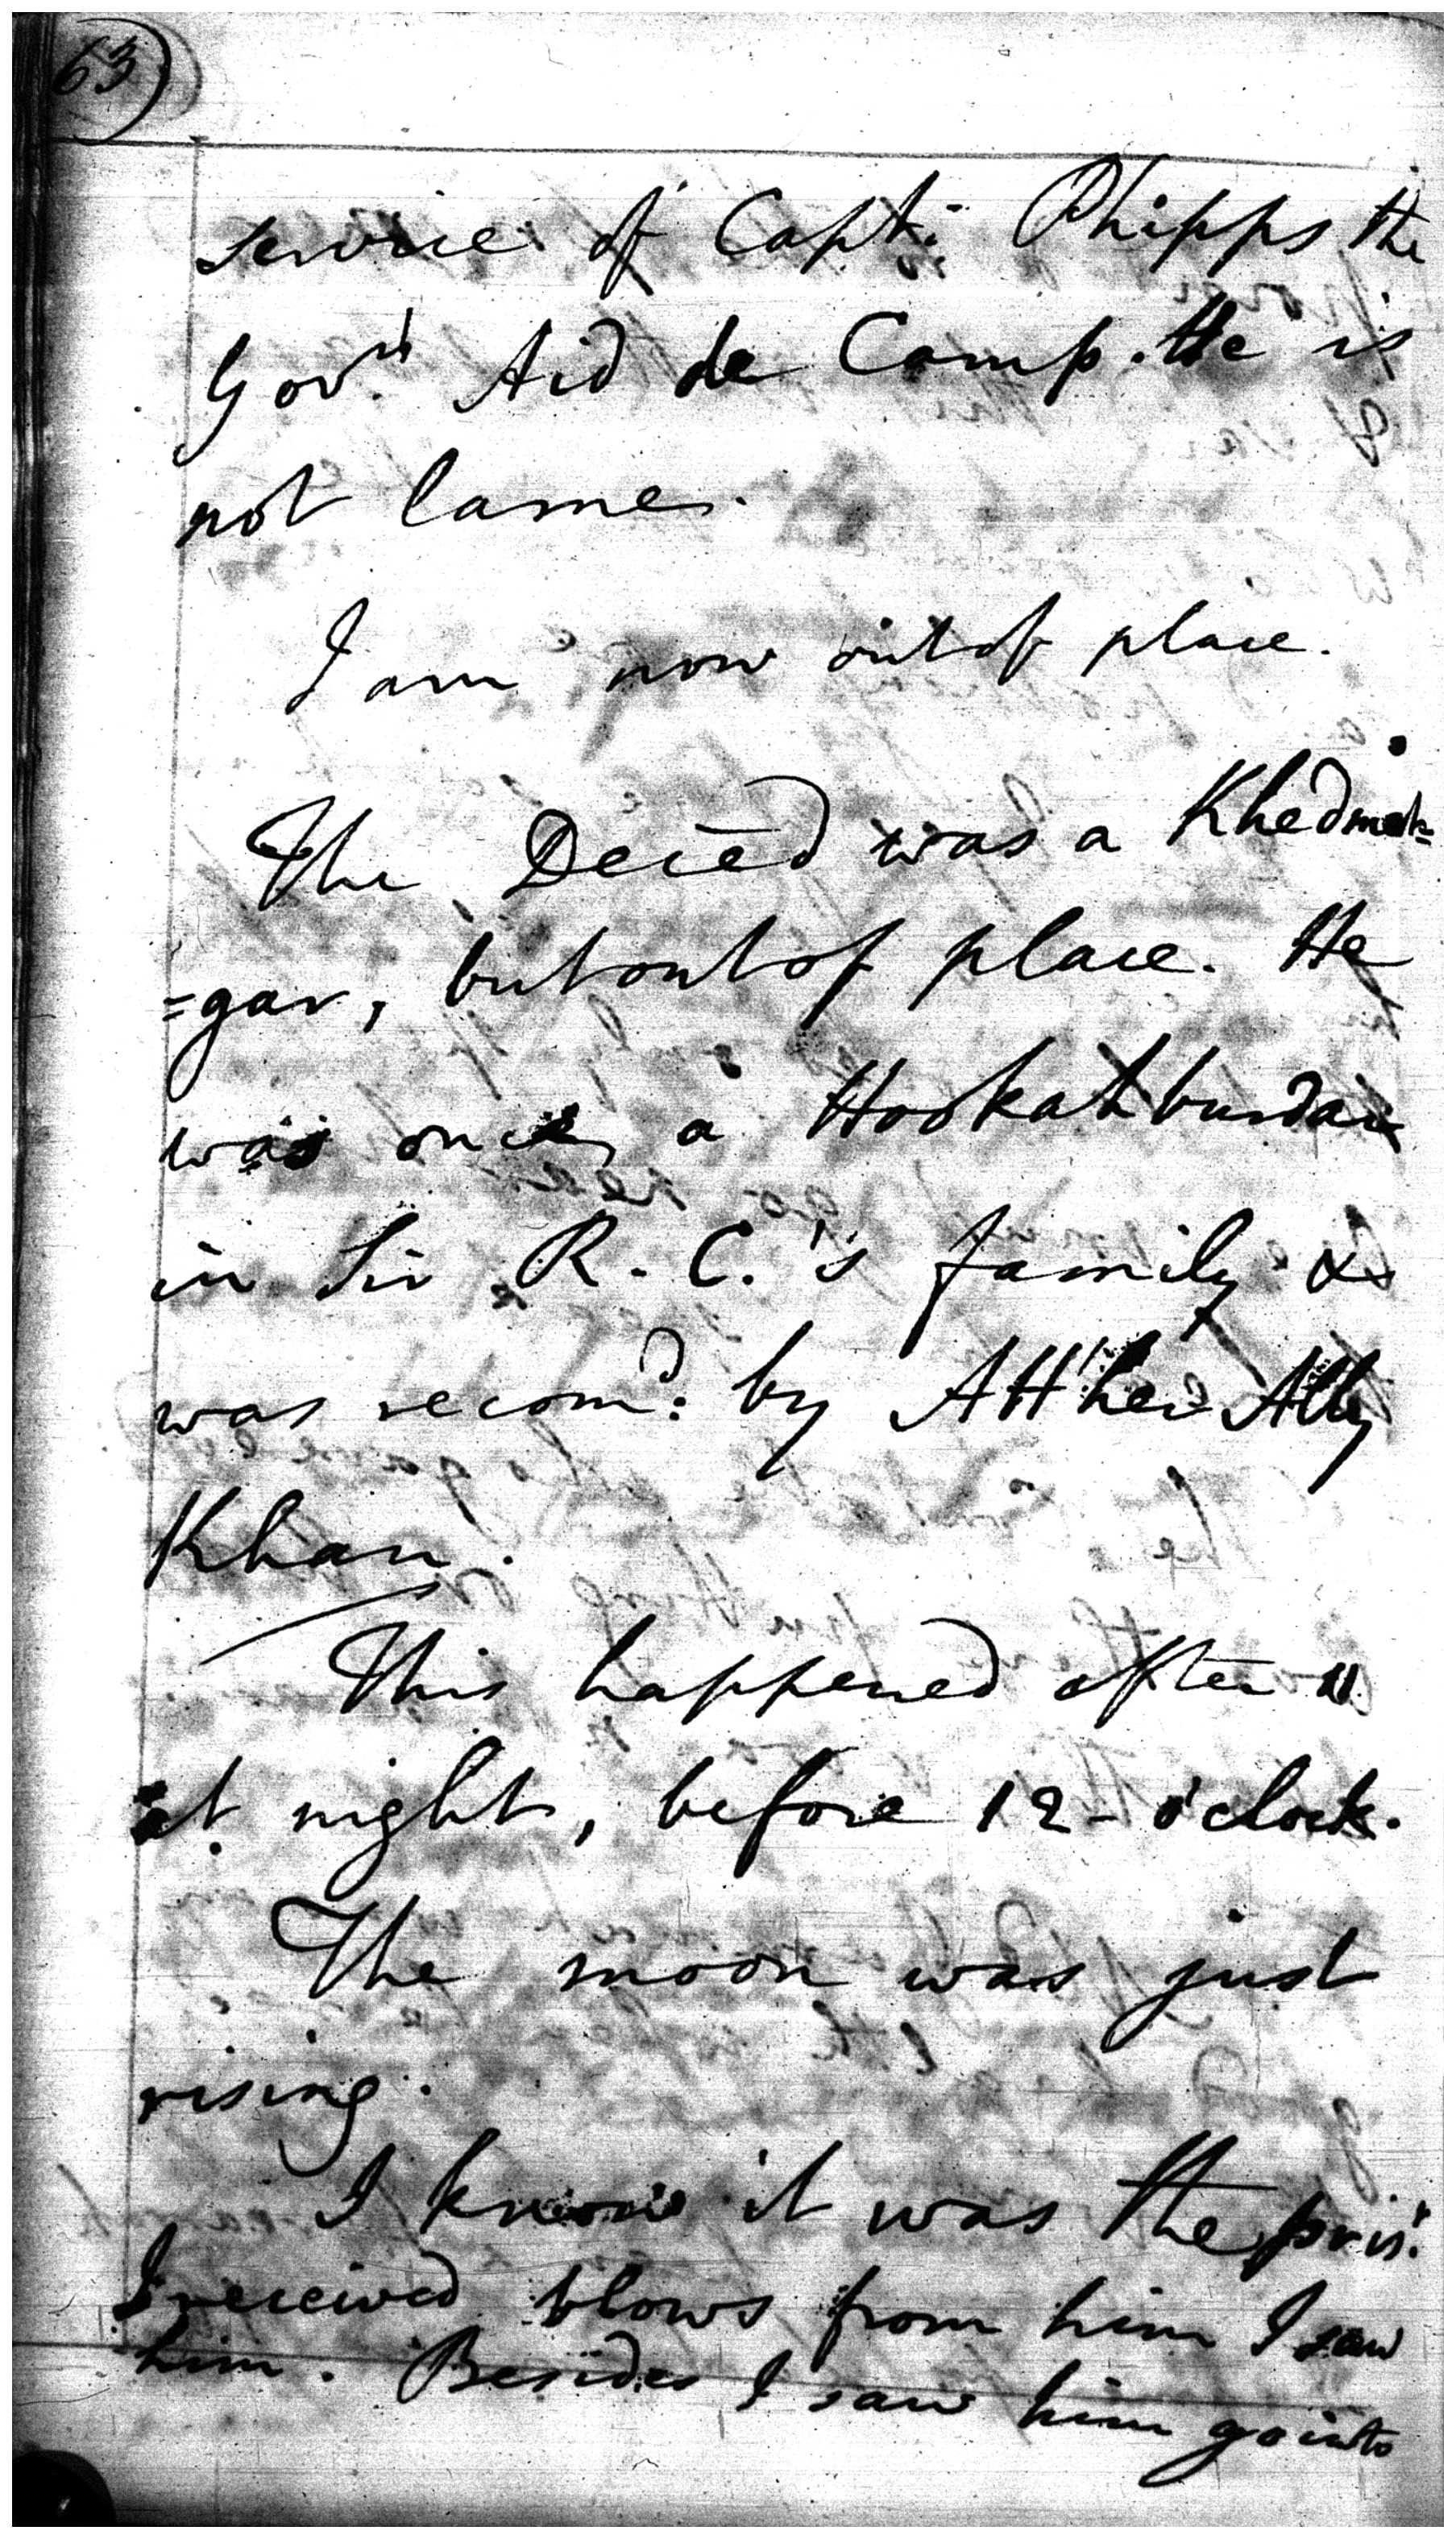 63
service of Capt: Phipps the
Govrs Aid de Camp. He is
not lame.
I am now out of place.
The Deced was a Khedmut=
=gar, but out of place. He
was once a Hookahburdar
in Sir R. C.'s family &
was recomd: by Atther Ally
Khan.
This happened after 11
at night, before 12 o'clock.
The moon was just
rising.
I know it was the prisr:
I received blows from him I saw
him. Besides I saw him go into